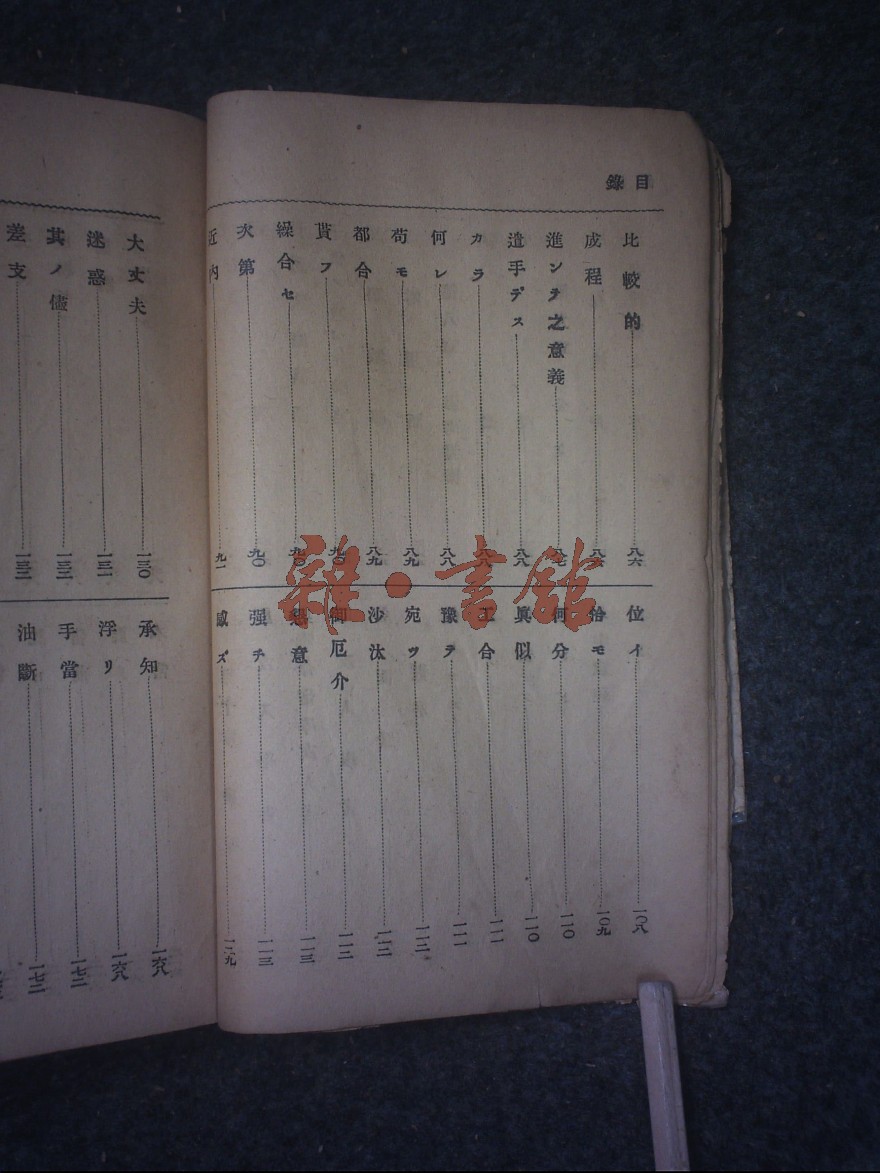 目錄
比較的 八六
成程 八六
進ンテ之意義 八七
造手デス 八八
カラ 八八
何レ 八八
苟モ 八九
都合 八九
貰フ 九〇
繰合セ 九〇
次第 九〇
近內 九一
位イ 一〇八
恰モ 一〇九
何分 一一〇
眞似 一一〇
工合 一一一
豫テ 一一一
宛ツ 一一二
沙汰 一一二
御厄介 一一二
意 一一三
强チ 一一三
ズ 一二九
大丈夫 一三〇
迷惑 一三一
其ノ儘 一三二
差支 一三二
承知 一六八
浮リ 一六八
手當 一七二
油斷 一七二
雜·書館